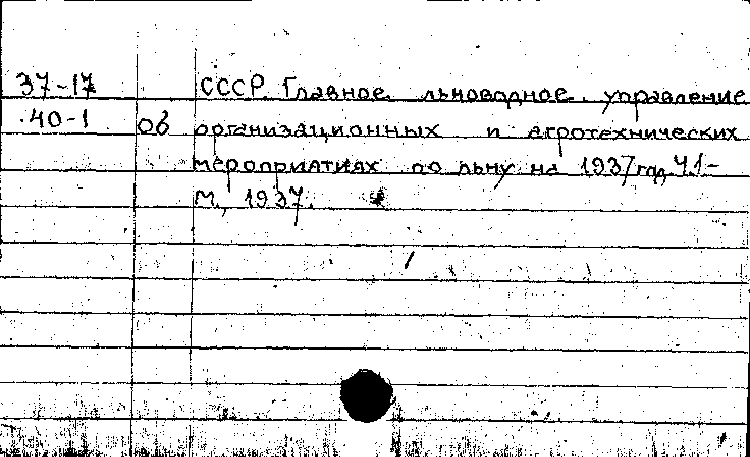 37-17 СССР. Главное льноводное управление
40-1 Об организационных и агротехнических
мероприятиях по льну на 1937 год. Ч.1-
М., 1937.